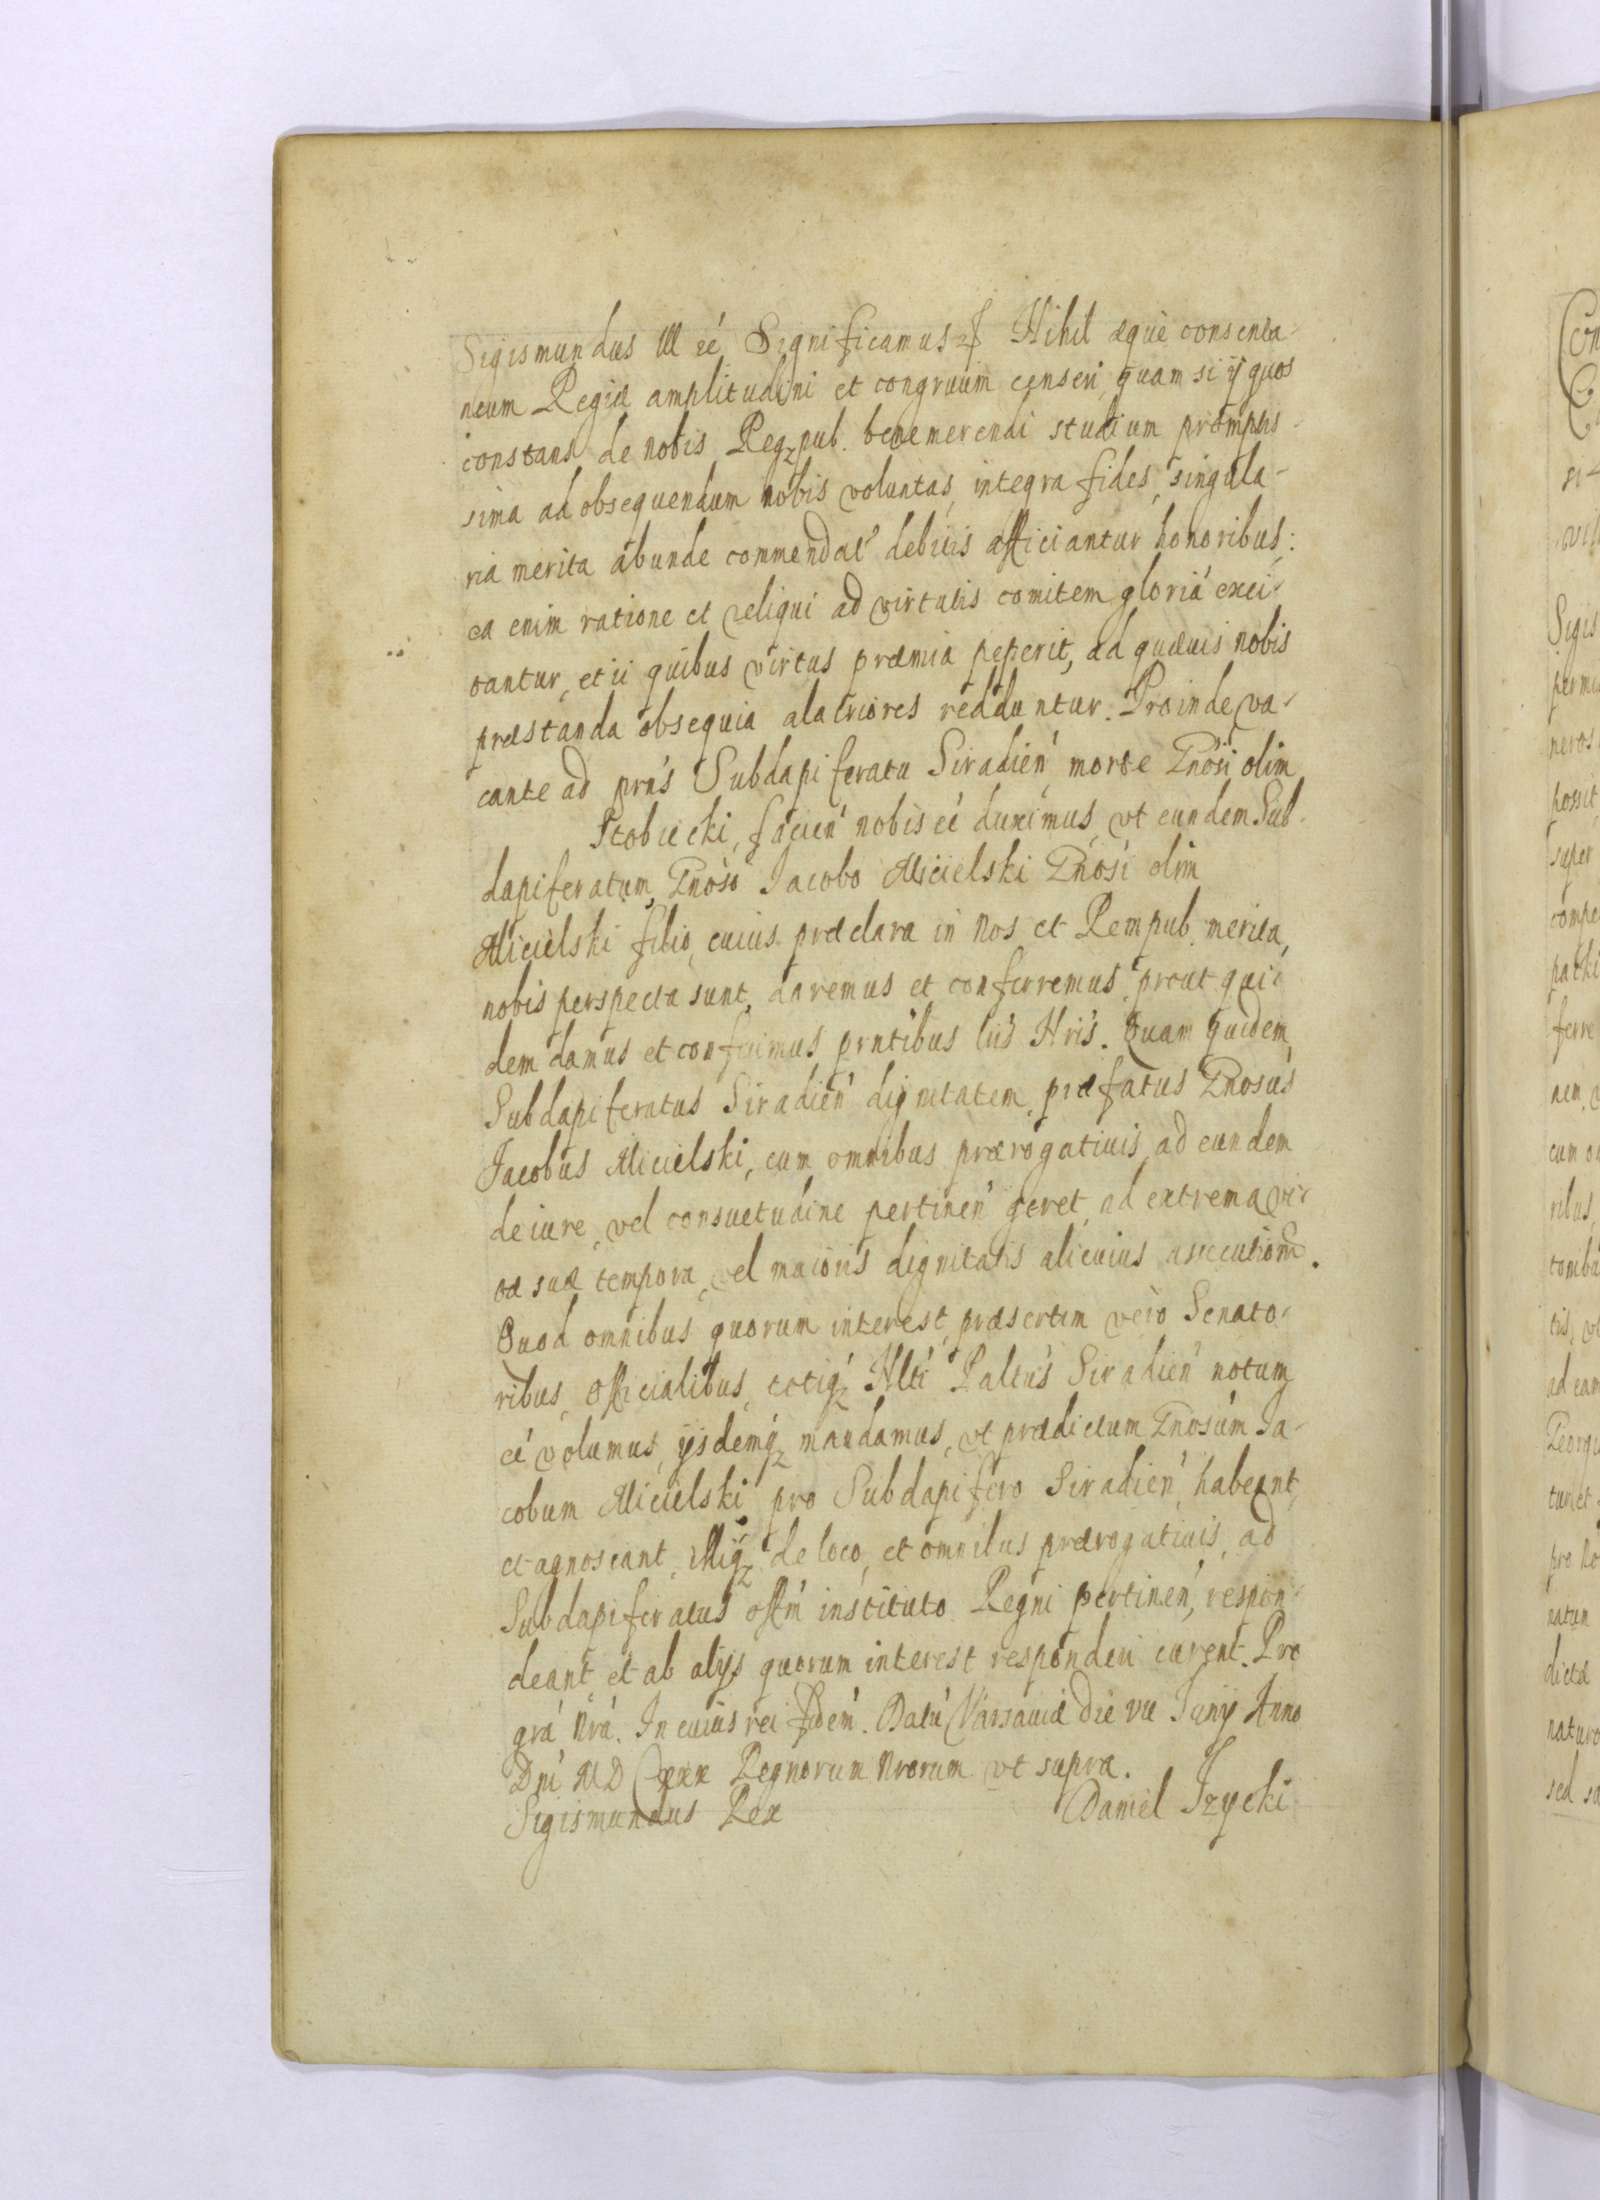 Sigismundus III etc Significamus etc Nihil æquè consenta-
neum Regiæ amplitudini et congruum censeri, quam si ij quos
constans de nobis Reqz pub. benemerendi studium promptis
sima ad obsequendum nobis voluntas, integra fides, singula-
ria merita abunde commendat debitis afficiantur honoribus:
ea enim ratione et reliqui ad virtutis comitem gloriá exci-
tantur, et ii quibus virtus præmia peperit, ad quævis nobis
præstanda obsequia alacriores redduntur. Proinde va-
cante ad prns Subdapiferatu Siradień morte Gnosi olim
Stobiecki, facień nobis eé duximus, vt eundem Sub-
dapiferatum, Gnoso Jacobo Micielski Gnosi olim
Micielski filio, cuius præclara in nos et Rempub. merita,
nobis perspecta sunt, daremus et conferremus, prout qui-
dem damus et conferimus prntibus lris Nris. Quam quidem
Subdapiferatus Siradień dignitatem, præfatus Gnosus
Jacobus Micielski, cum omnibus prærogatiuis, ad eundem
de iure, vel consuetudine pertineń geret, ad extrema vi-
tæ suæ tempora, vel maioris dignitatis alicuius assecutionẽ.
Quod omnibus quorum interest, præsertim verò Senato-
ribus, Officialibus, totiqz Nlti Paltus Siradień notum
eé volumus, ijsdemqz mandamus, vt prædictum Gnosum Ja-
cobum Micielski pro Subdapifero Siradień habeant,
et agnoscant, illiqz de loco, et omnibus prærogatiuis, ad
Subdapiferatus offm instituto Regni pertineń, respon-
deant et ab alijs quorum interest responderi curent. Pro
grá nrá. In cuius rei fidem. Datú Varsauiæ die VII Junij Anno
Dni MDCXXX Regnorum nrorum vt supra.
Sigismundus Rex Daniel Izycki